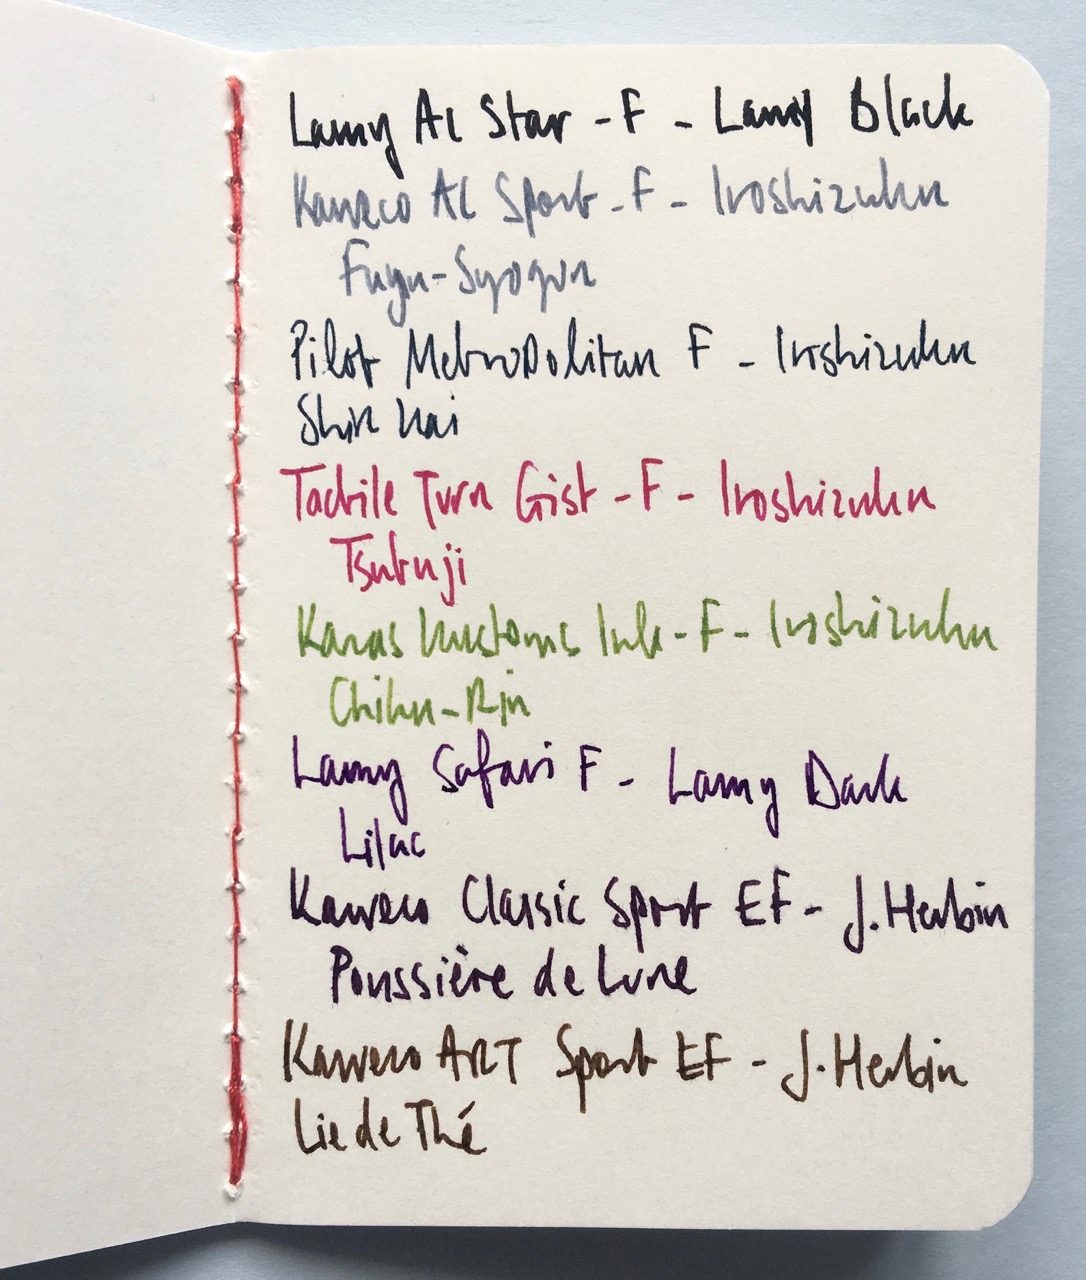 Lamy AL Star - F - Lamy Black
Kaweco AL Sport - F - Iroshizuku
Fuyu-Syogun
Pilot Metropolitan F - Iroshizuku
Shin Kai
Tactile Turn Gist - F - Iroshizuku
Tsutuji
Karas Kustoms Ink - F - Iroshizuku
Chiku-Rin
Lamy Safari F - Lamy Dark
Lilac
Kaweco Classic Sport EF - J. Herbin
Poussière de Lune
Kaweco ART Sport EF - J. Herbin
Lie de Thé